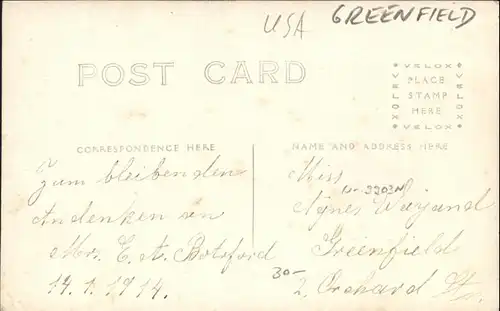 USA GREENFIELD
POST CARD
VELOX
VELOX
VELOX
PLACE
STAMP
HERE
VELOX
CORRESPONDENCE HERE
NAME AND ADDRESS HERE
Zum bleibenden
Andenken von
Mrs. C. A. Botsford
19.1.1914.
Miss
Agnes Weyand
Greenfield
2, Orchard St.
30-